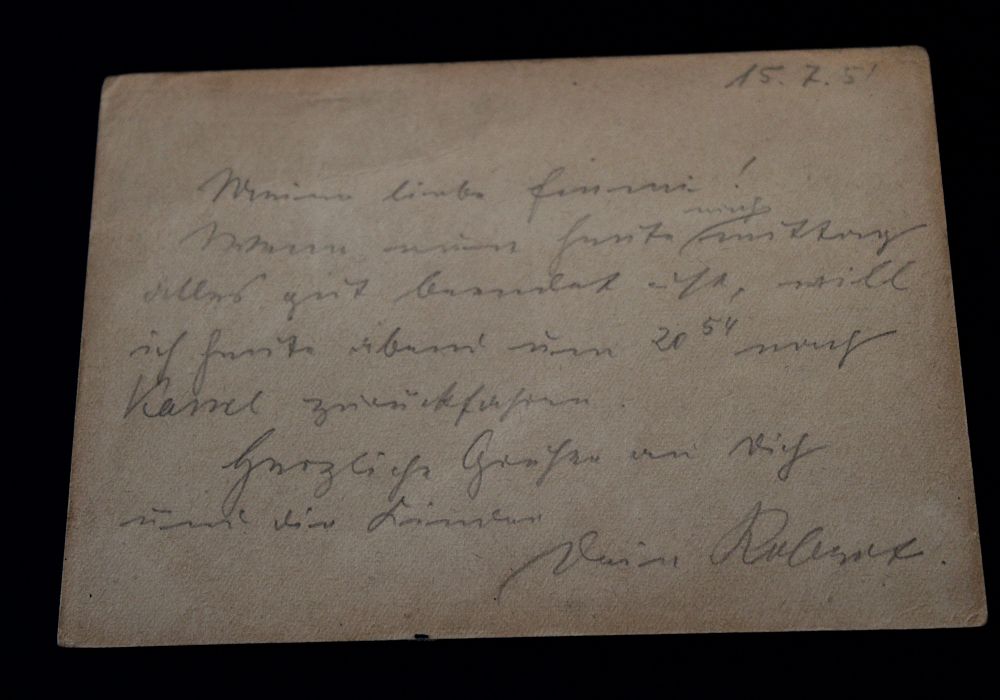 15.7.51
Meine liebe Emmi!
Wenn nun heute nachmittag
alles gut beendet ist, will
ich heute abend um 20⁵⁴ nach
Kassel zurückfahren.
Herzliche Grüße an Dich
und die Kinder
Dein Robert.